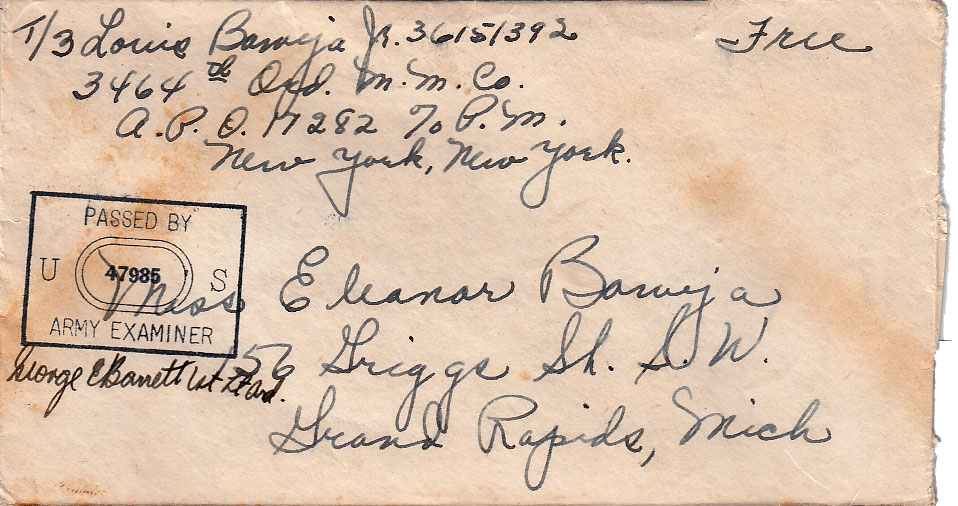 T/3 Louis Bawyja Jr. 36151392
Free
3464th Ord. M. M. Co.
A. P. O. 17282 % P. M.
New York, New York.
PASSED BY
U 47985 S
ARMY EXAMINER
George E Barrett 1st Lt Ord.
Miss Eleanor Bawyja
56 Griggs St. S. W.
Grand Rapids, Mich